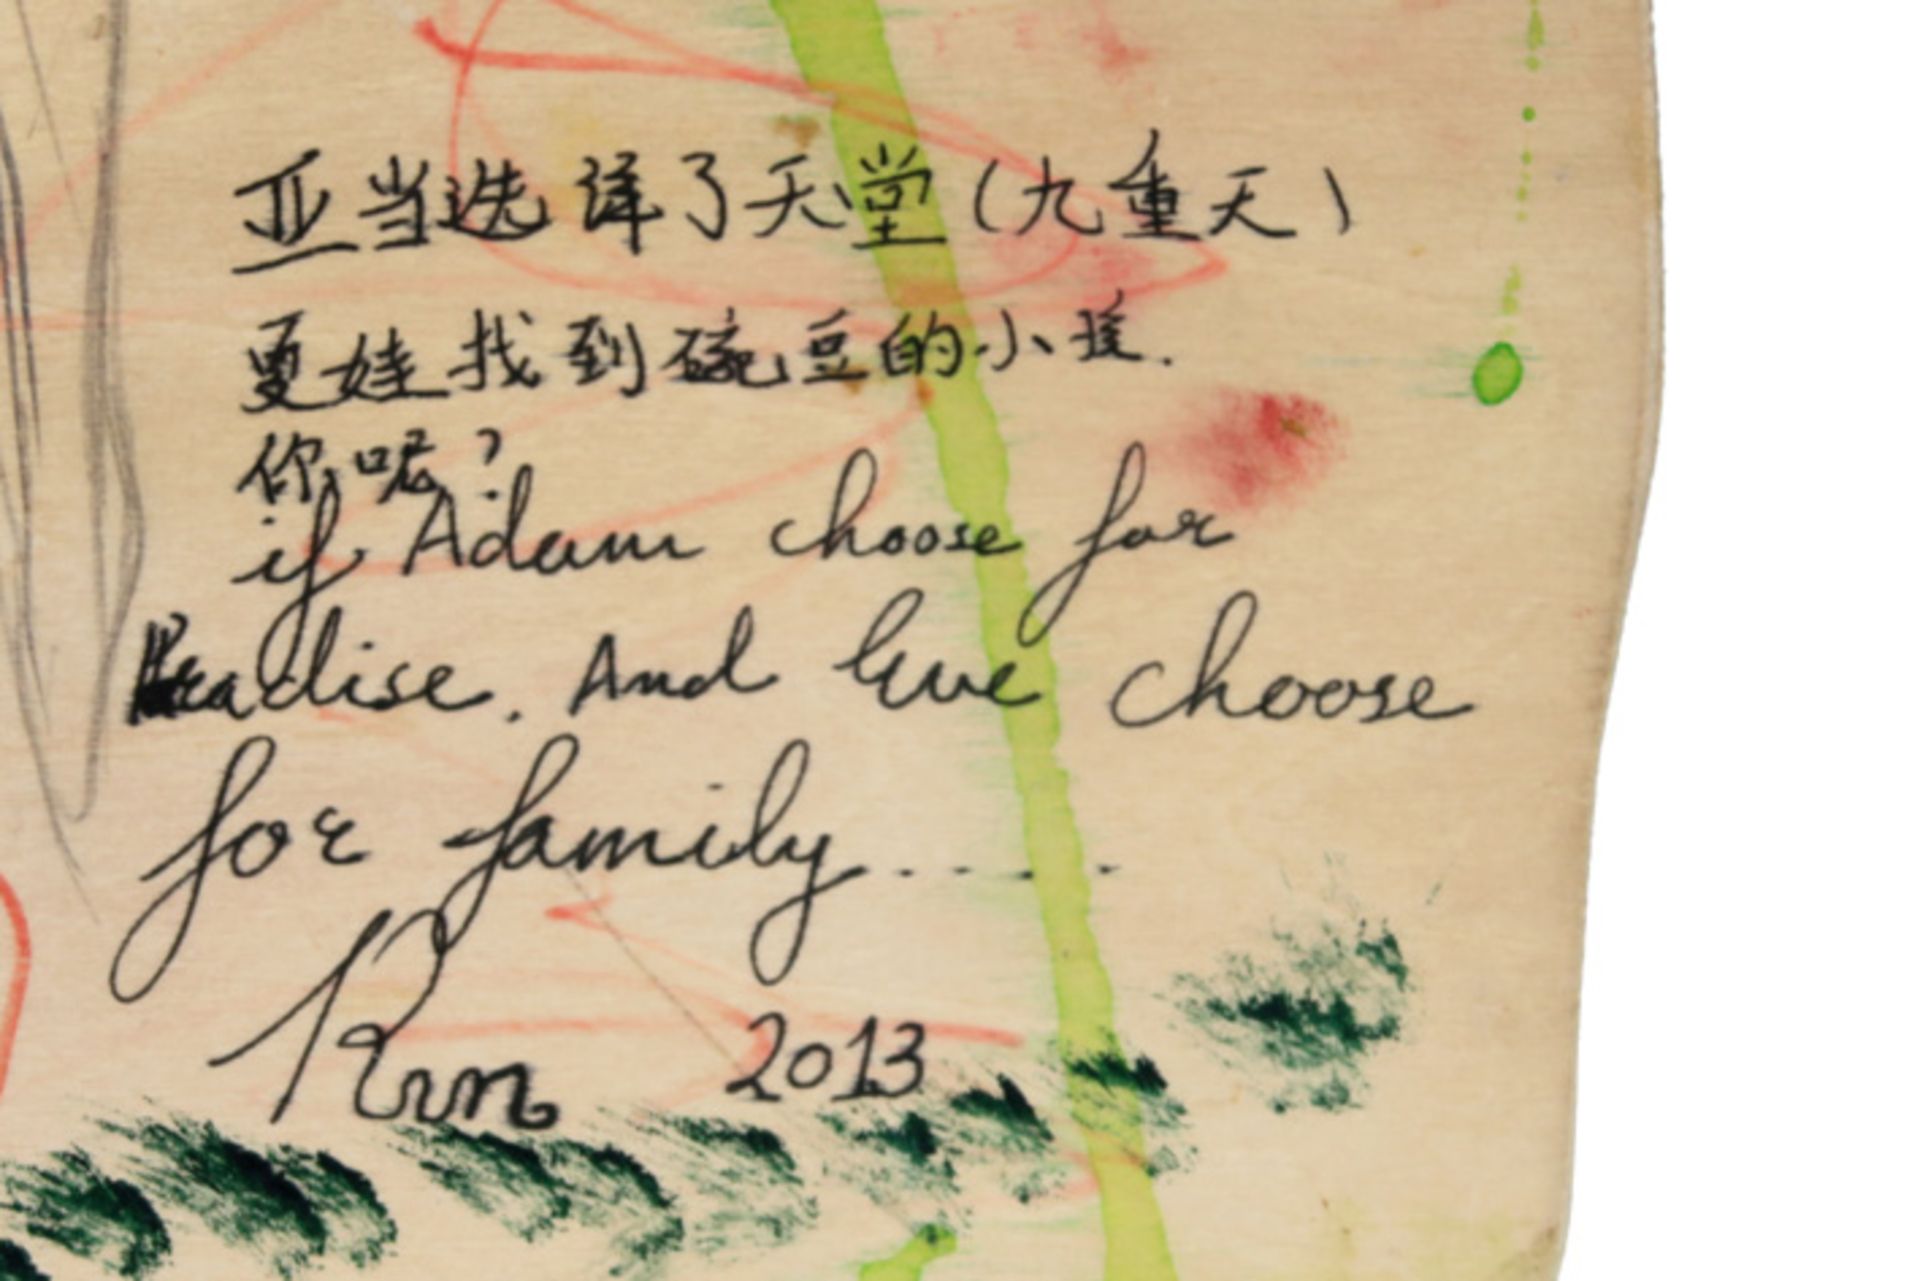 亚当选译了天堂(九重天)
夏娃找到碗豆的小孩.
你呢?
if Adam choose for
Paradise. And Eve choose
for family......
2013